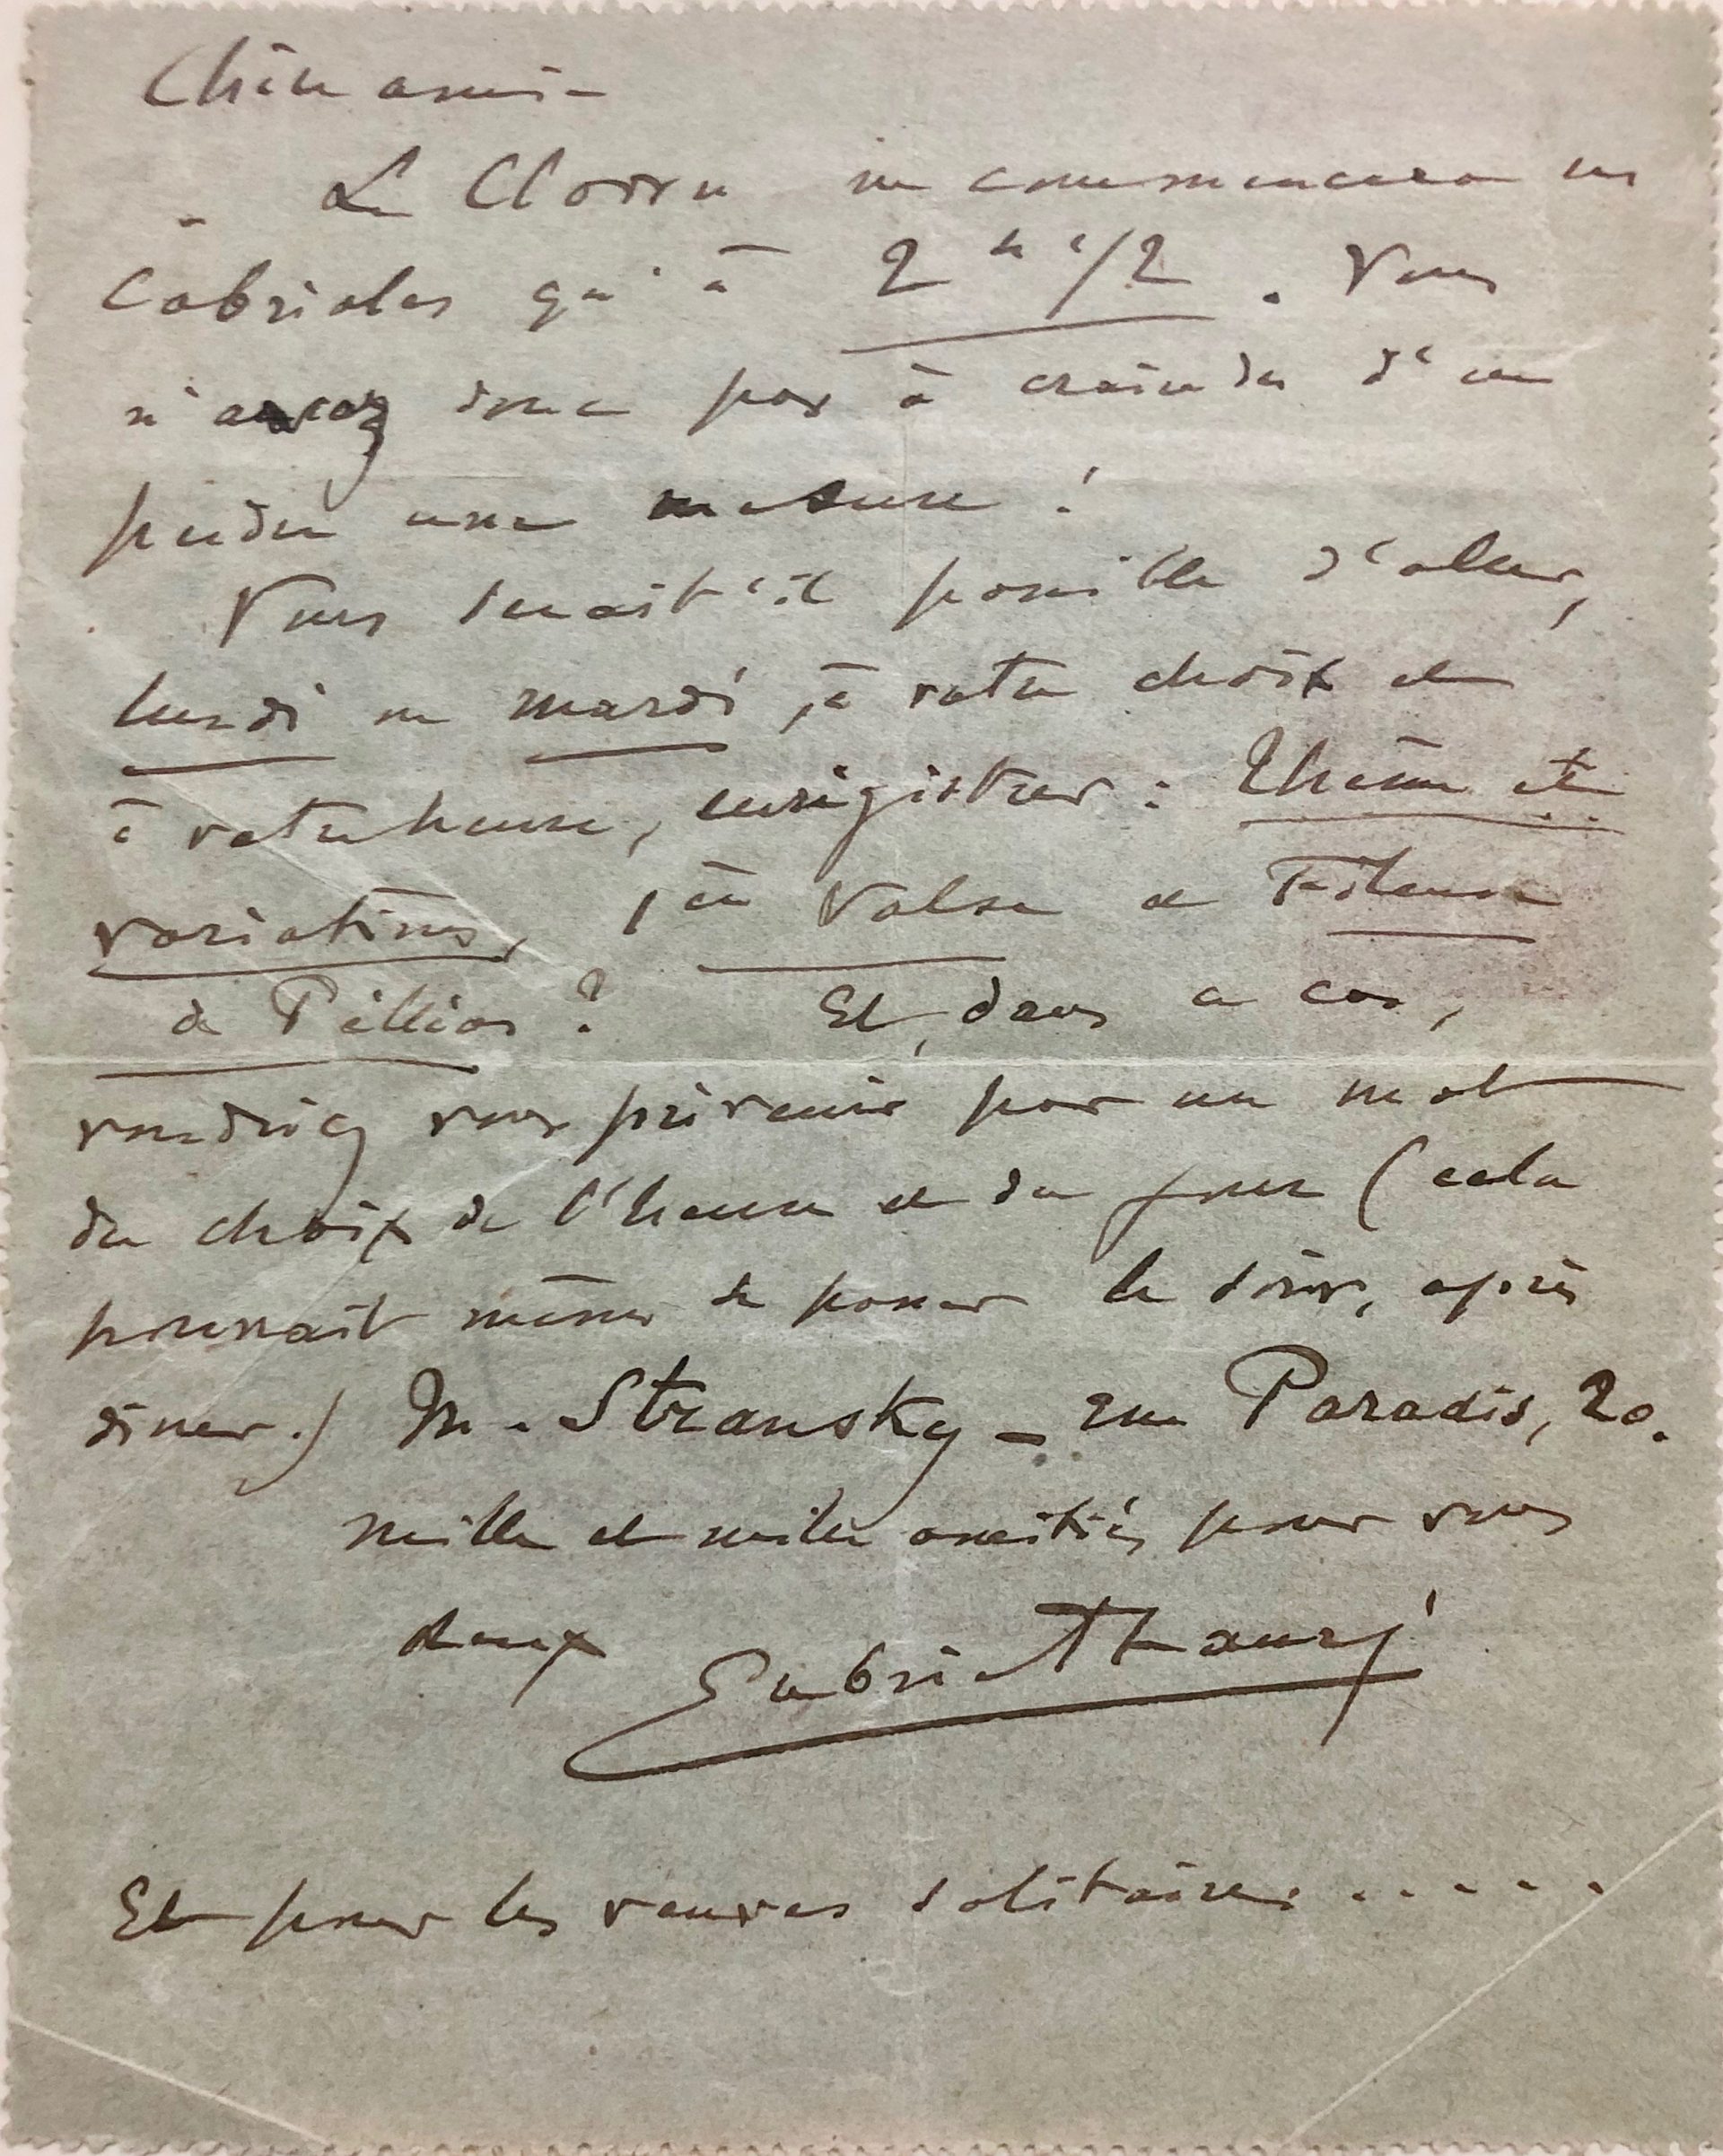 Chère amie -
Le Clown ne commencera ses
Cabrioles qu'à 2 h 1/2. Vous
n'aurez donc pas à craindre d'en
perdre une mesure !
Vous serait-il possible d'aller,
lundi ou mardi, à votre choix et
à votre heure, enrégistrer : Thème et
variations, Valse et Fileuse
de Pelléas ? Et, dans ce cas,
voudriez vous prévenir par un mot
du choix de l'heure et du jour (cela
pourrait même se passer le soir, après
diner.) M. Stransky - rue Paradis, 20.
Mille et mille amitiés pour vous
deux Gabriel Fauré
Et pour les veuves solitaires .....